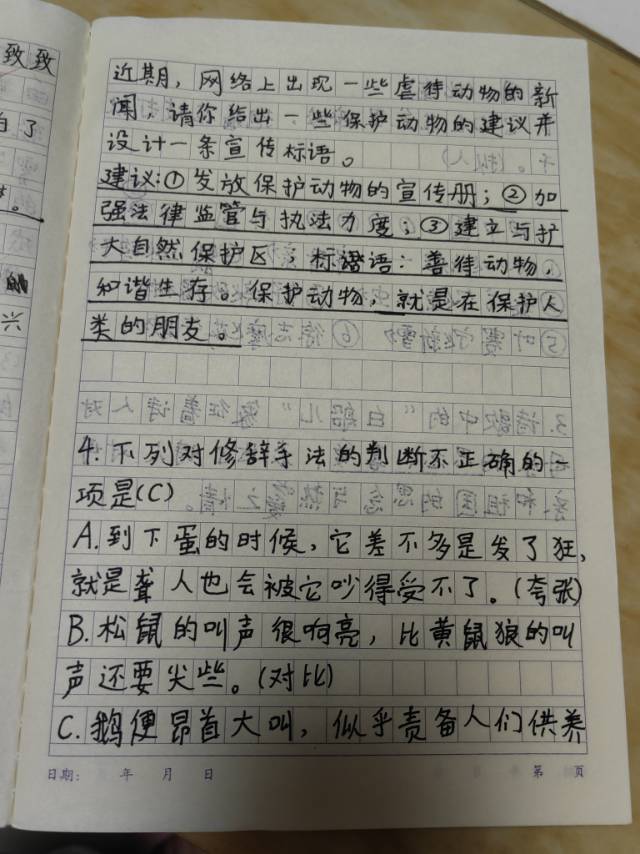 致致
白了
的
兴
近期，网络上出现一些虐待动物的新
闻，请你给出一些保护动物的建议并
设计一条宣传标语。
建议:①发放保护动物的宣传册；②加
强法律监管与执法力度；③建立与扩
大自然保护区；标谐语：善待动物，
和谐生存。保护动物，就是在保护人
类的朋友。
4.下列对修辞手法的判断不正确的一
项是(C)
A.到下蛋的时候，它差不多是发了狂，
就是聋人也会被它吵得受不了。(夸张)
B.松鼠的叫声很响亮，比黄鼠狼的叫
声还要尖些。(对比)
C.鹅便昂首大叫，似乎责备人们供养
日期： 年 月 日 第 页